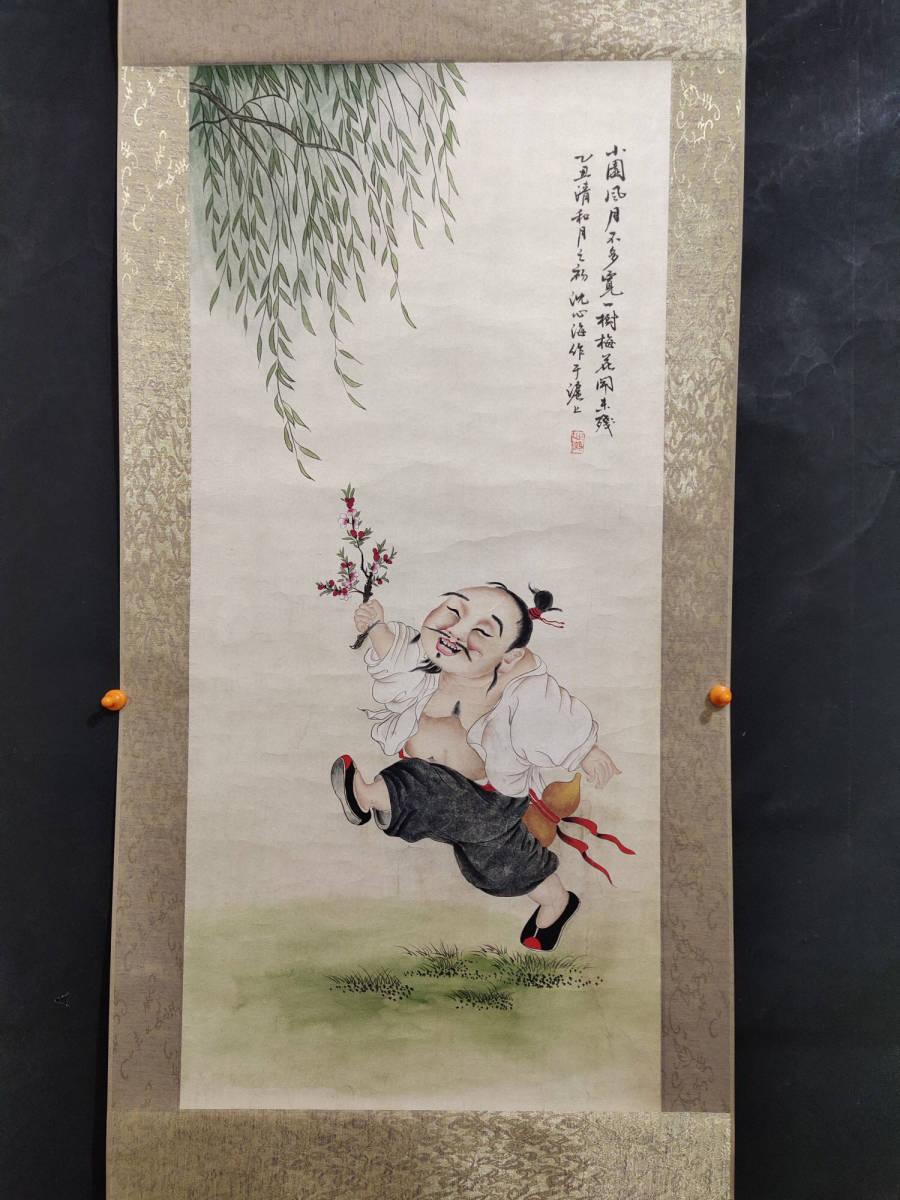 小園風月不多寬一樹梅花開未殘
乙丑清和月之初沈心海作于滬上